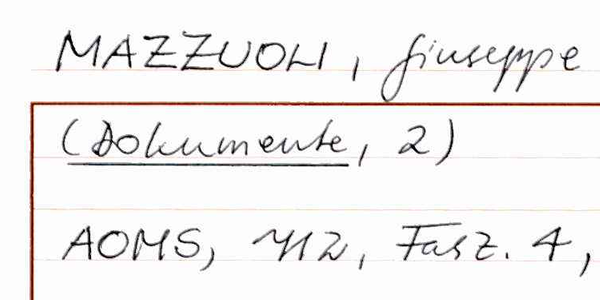 MAZZUOLI, Giuseppe
(Dokumente, 2)
AOMS, 712, Fasz. 4,